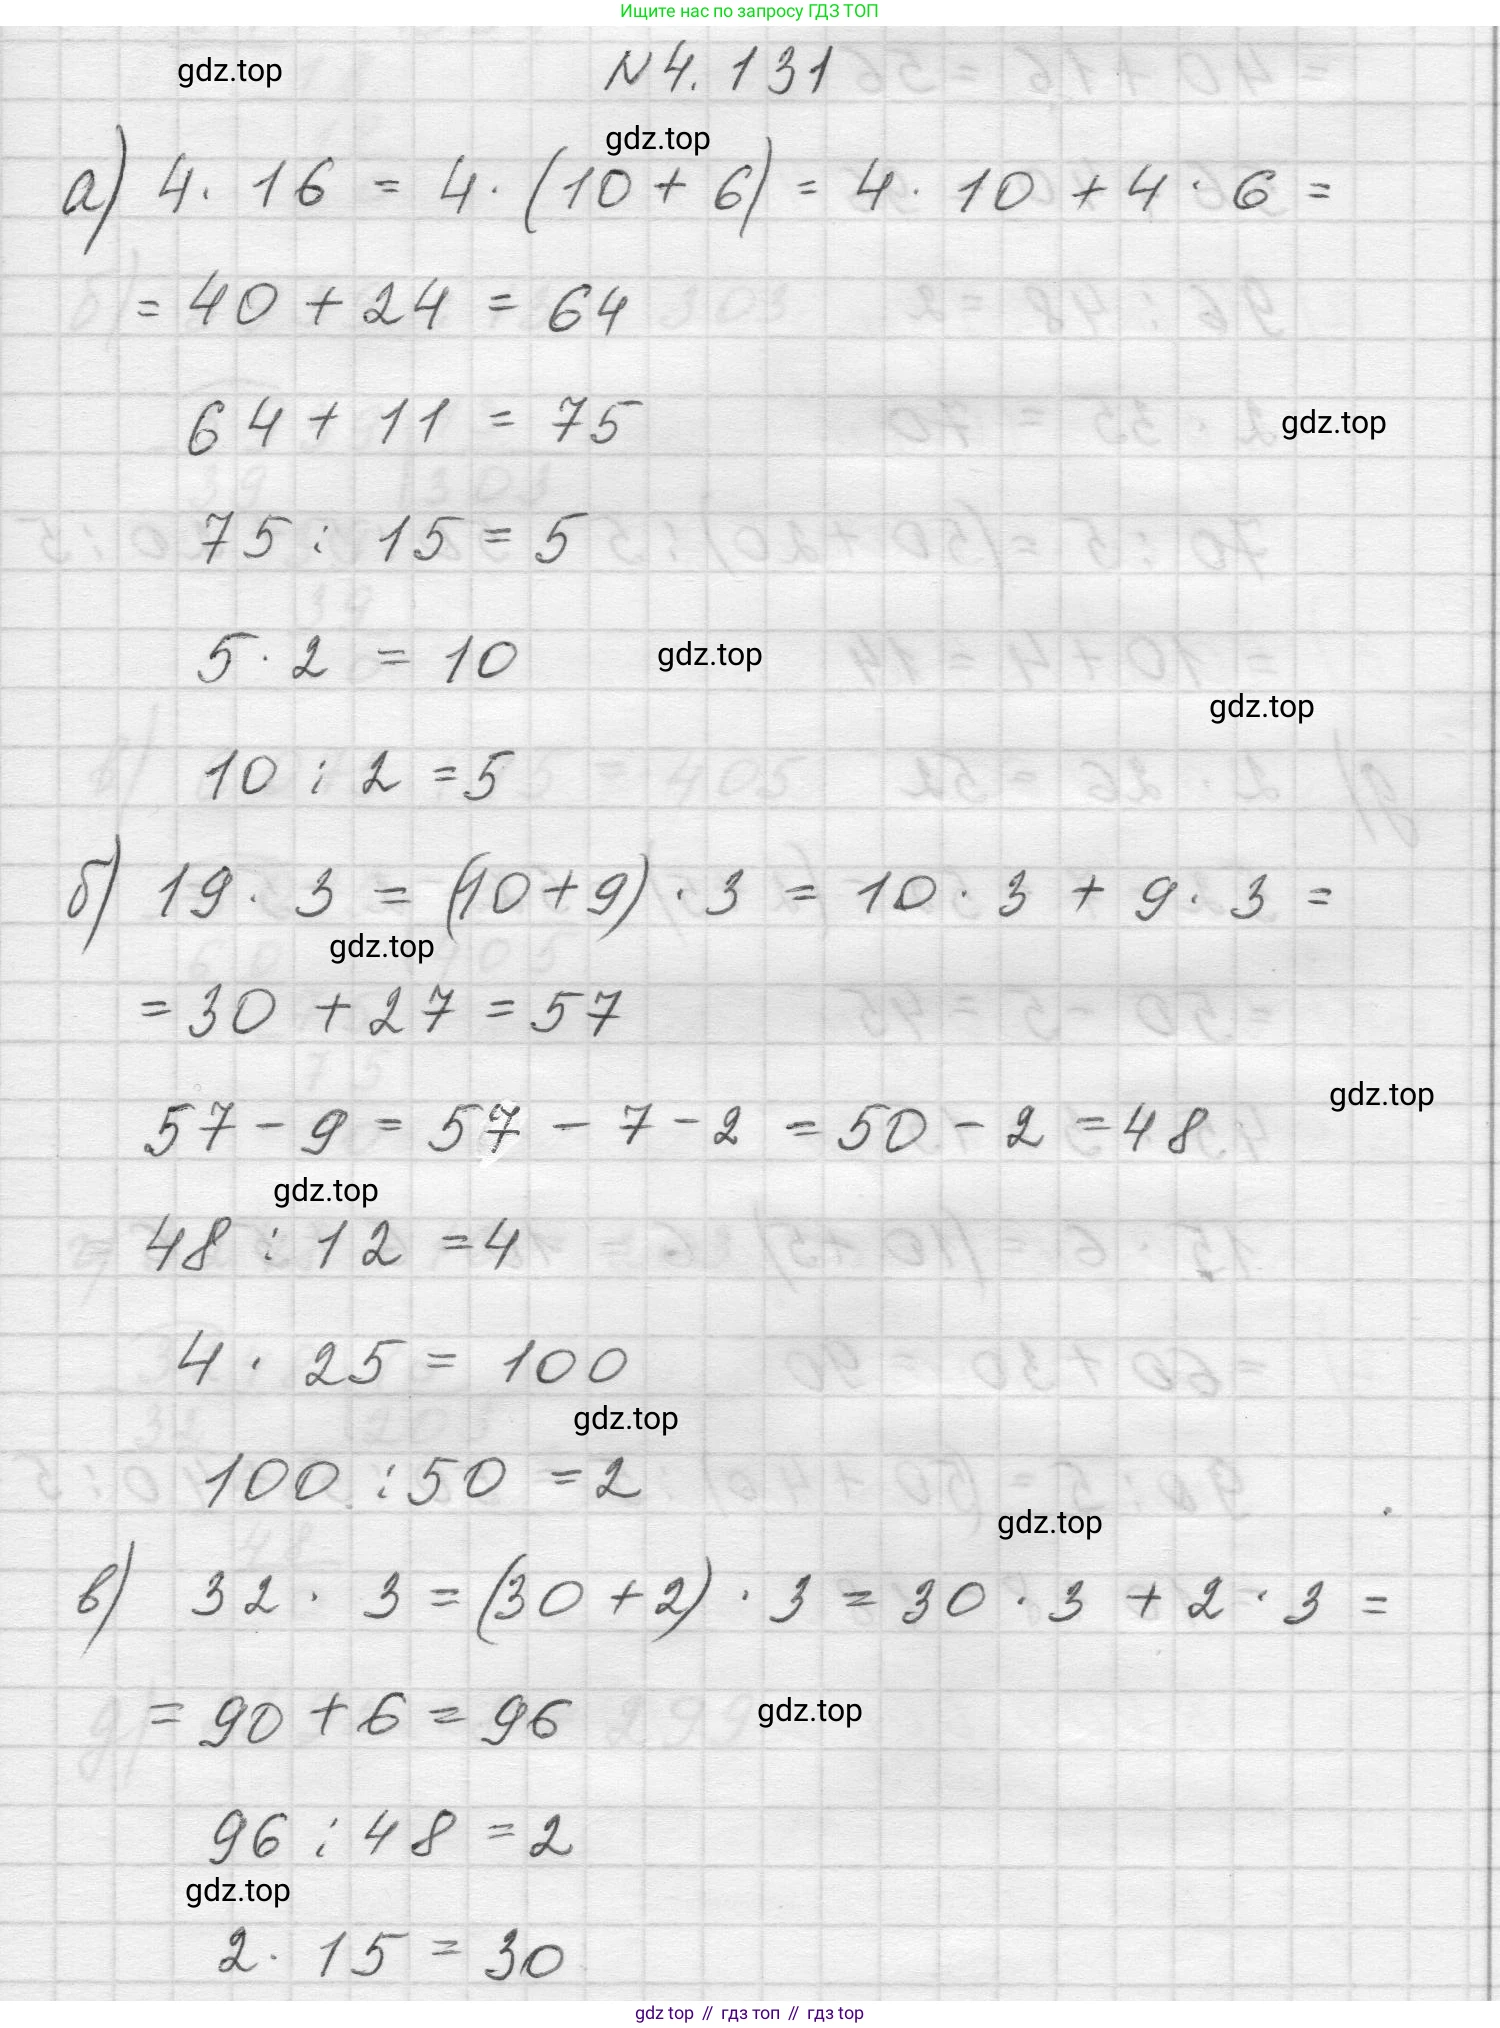 Ищите нас по запросу ГДЗ ТОП
gdz.top
№4.131
gdz.top
а) 4 · 16 = 4 · (10 + 6) = 4 · 10 + 4 · 6 =
= 40 + 24 = 64
64 + 11 = 75
gdz.top
75 : 15 = 5
5 · 2 = 10
gdz.top
gdz.top
10 : 2 = 5
б) 19 · 3 = (10 + 9) · 3 = 10 · 3 + 9 · 3 =
gdz.top
= 30 + 27 = 57
gdz.top
57 - 9 = 57 - 7 - 2 = 50 - 2 = 48
gdz.top
48 : 12 = 4
4 · 25 = 100
gdz.top
100 : 50 = 2
gdz.top
в) 32 · 3 = (30 + 2) · 3 = 30 · 3 + 2 · 3 =
= 90 + 6 = 96
gdz.top
96 : 48 = 2
gdz.top
2 · 15 = 30
gdz top // гдз топ // гдз top